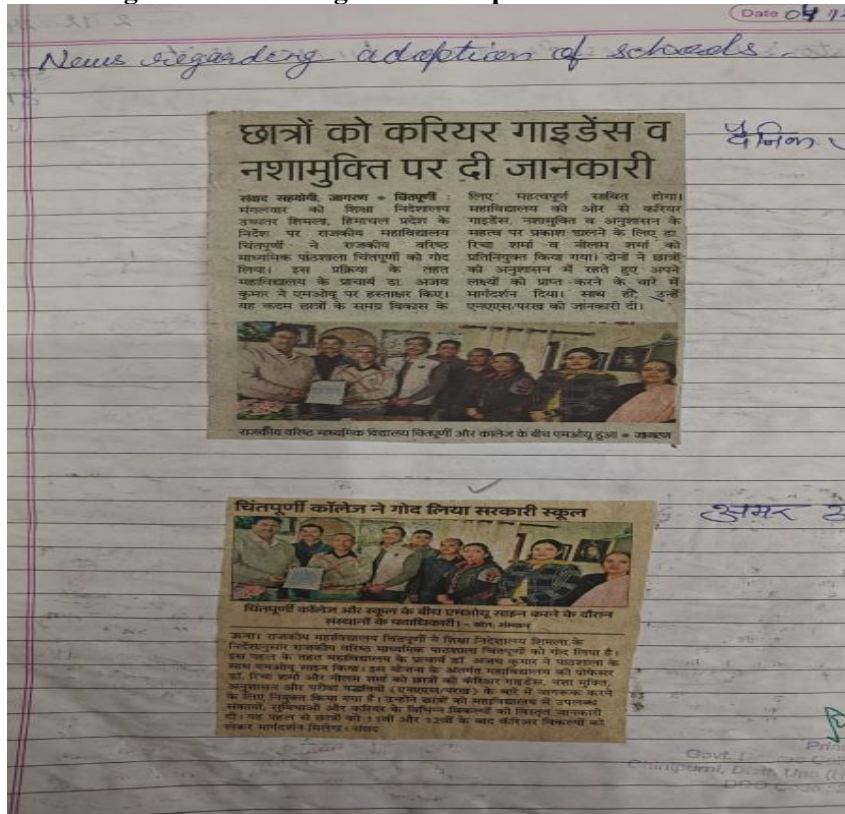 Date 04
News regarding adoption of schools
छात्रों को करियर गाइडेंस व
नशामुक्ति पर दी जानकारी
दैनिक
संवाद सहयोगी, जागरण • चिंतपूर्णी :
मंगलवार को शिक्षा निदेशालय
उच्चतर शिमला, हिमाचल प्रदेश के
निर्देश पर राजकीय महाविद्यालय
चिंतपूर्णी ने राजकीय वरिष्ठ
माध्यमिक पाठशाला चिंतपूर्णी को गोद
लिया। इस प्रक्रिया के तहत
महाविद्यालय के प्राचार्य डा. अजय
कुमार ने एमओयू पर हस्ताक्षर किए।
यह कदम छात्रों के समग्र विकास के
लिए महत्वपूर्ण साबित होगा।
महाविद्यालय की ओर से करियर
गाइडेंस, नशामुक्ति व अनुशासन के
महत्व पर प्रकाश डालने के लिए डा.
रिचा शर्मा व नीलम शर्मा को
प्रतिनियुक्त किया गया। दोनों ने छात्रों
को अनुशासन में रहते हुए अपने
लक्ष्यों को प्राप्त करने के बारे में
मार्गदर्शन दिया। साथ ही उन्हें
एनएएस/परख की जानकारी दी।
राजकीय वरिष्ठ माध्यमिक विद्यालय चिंतपूर्णी और कालेज के बीच एमओयू हुआ • जागरण
चिंतपूर्णी कॉलेज ने गोद लिया सरकारी स्कूल
अमर
चिंतपूर्णी कॉलेज और स्कूल के बीच एमओयू साइन करने के दौरान
संस्थानों के पदाधिकारी। - स्रोत: संस्थान
ऊना। राजकीय महाविद्यालय चिंतपूर्णी ने शिक्षा निदेशालय शिमला के
निर्देशानुसार राजकीय वरिष्ठ माध्यमिक पाठशाला चिंतपूर्णी को गोद लिया है।
इस पहल के तहत महाविद्यालय के प्राचार्य डॉ. अजय कुमार ने पाठशाला के
साथ एमओयू साइन किया। इस योजना के अंतर्गत महाविद्यालय की प्रोफेसर
डॉ. रिचा शर्मा और नीलम शर्मा को छात्रों को करिअर गाइडेंस, नशा मुक्ति,
अनुशासन और परीक्षा पद्धतियों (एनएएस/परख) के बारे में जागरूक करने
के लिए नियुक्त किया गया है। उन्होंने छात्रों को महाविद्यालय में उपलब्ध
संकायों, सुविधाओं और करिअर के विभिन्न विकल्पों की विस्तृत जानकारी
दी। यह पहल से छात्रों को 11वीं और 12वीं के बाद करिअर विकल्पों को
लेकर मार्गदर्शन मिलेगा। संवाद
Govt.
Chintpurni, Distt. Una
DDO Code